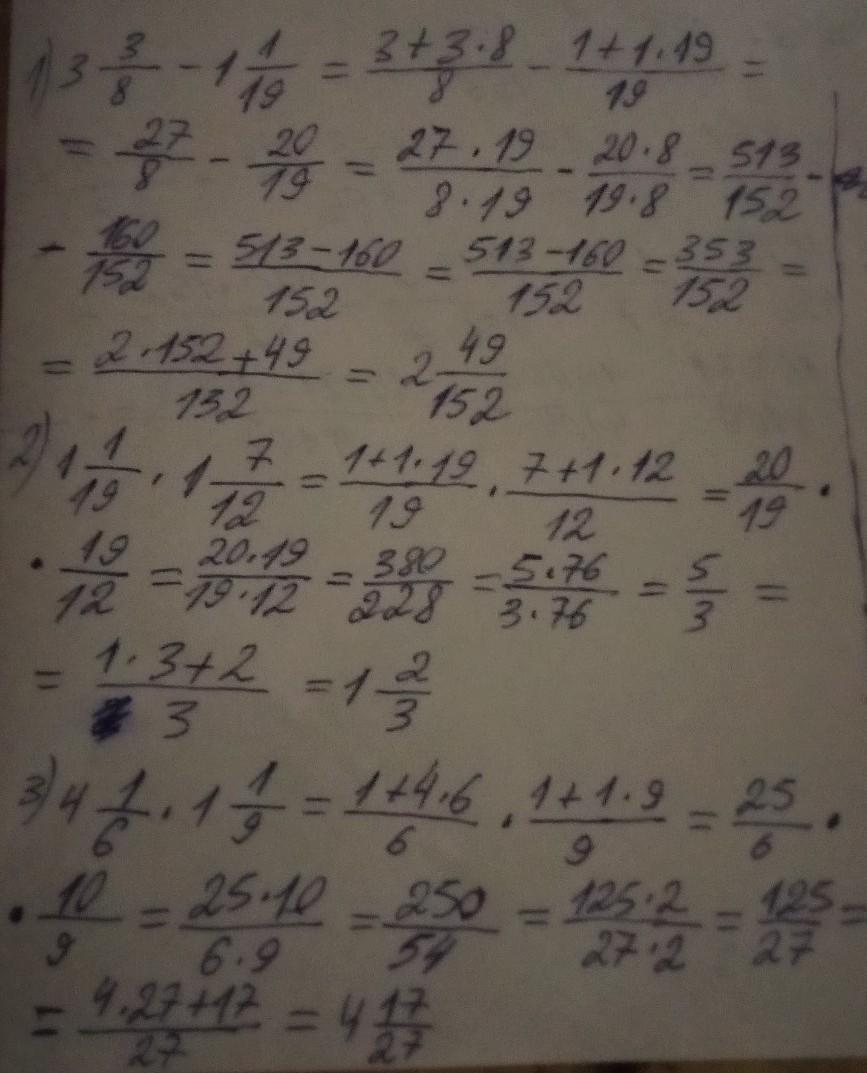 1) 3 3/8 - 1 1/19 = (3+3·8)/8 - (1+1·19)/19 =
= 27/8 - 20/19 = (27·19)/(8·19) - (20·8)/(19·8) = 513/152 -
- 160/152 = (513-160)/152 = (513-160)/152 = 353/152 =
= (2·152+49)/132 = 2 49/152
2) 1 1/19 · 1 7/12 = (1+1·19)/19 · (7+1·12)/12 = 20/19 ·
· 19/12 = (20·19)/(19·12) = 380/228 = (5·76)/(3·76) = 5/3 =
= (1·3+2)/3 = 1 2/3
3) 4 1/6 · 1 1/9 = (1+4·6)/6 · (1+1·9)/9 = 25/6 ·
· 10/9 = (25·10)/(6·9) = 250/54 = (125·2)/(27·2) = 125/27 =
= (4·27+17)/27 = 4 17/27